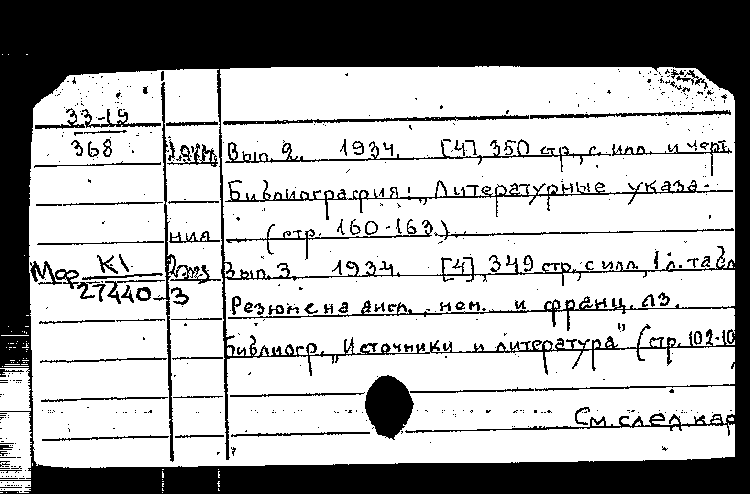 33-19
368 Вып. 2. 1934. [4], 350 стр., с илл. и черт.
Библиография: „Литературные указа-
ния (стр. 160-163.)
Мор К1 Вып. 3. 1934. [4], 349 стр., с илл., 1 л. табл
27440-3 Резюме на англ., нем. и франц. яз.
Библиогр. „Источники и литература" (стр. 102-10
См. след. кар